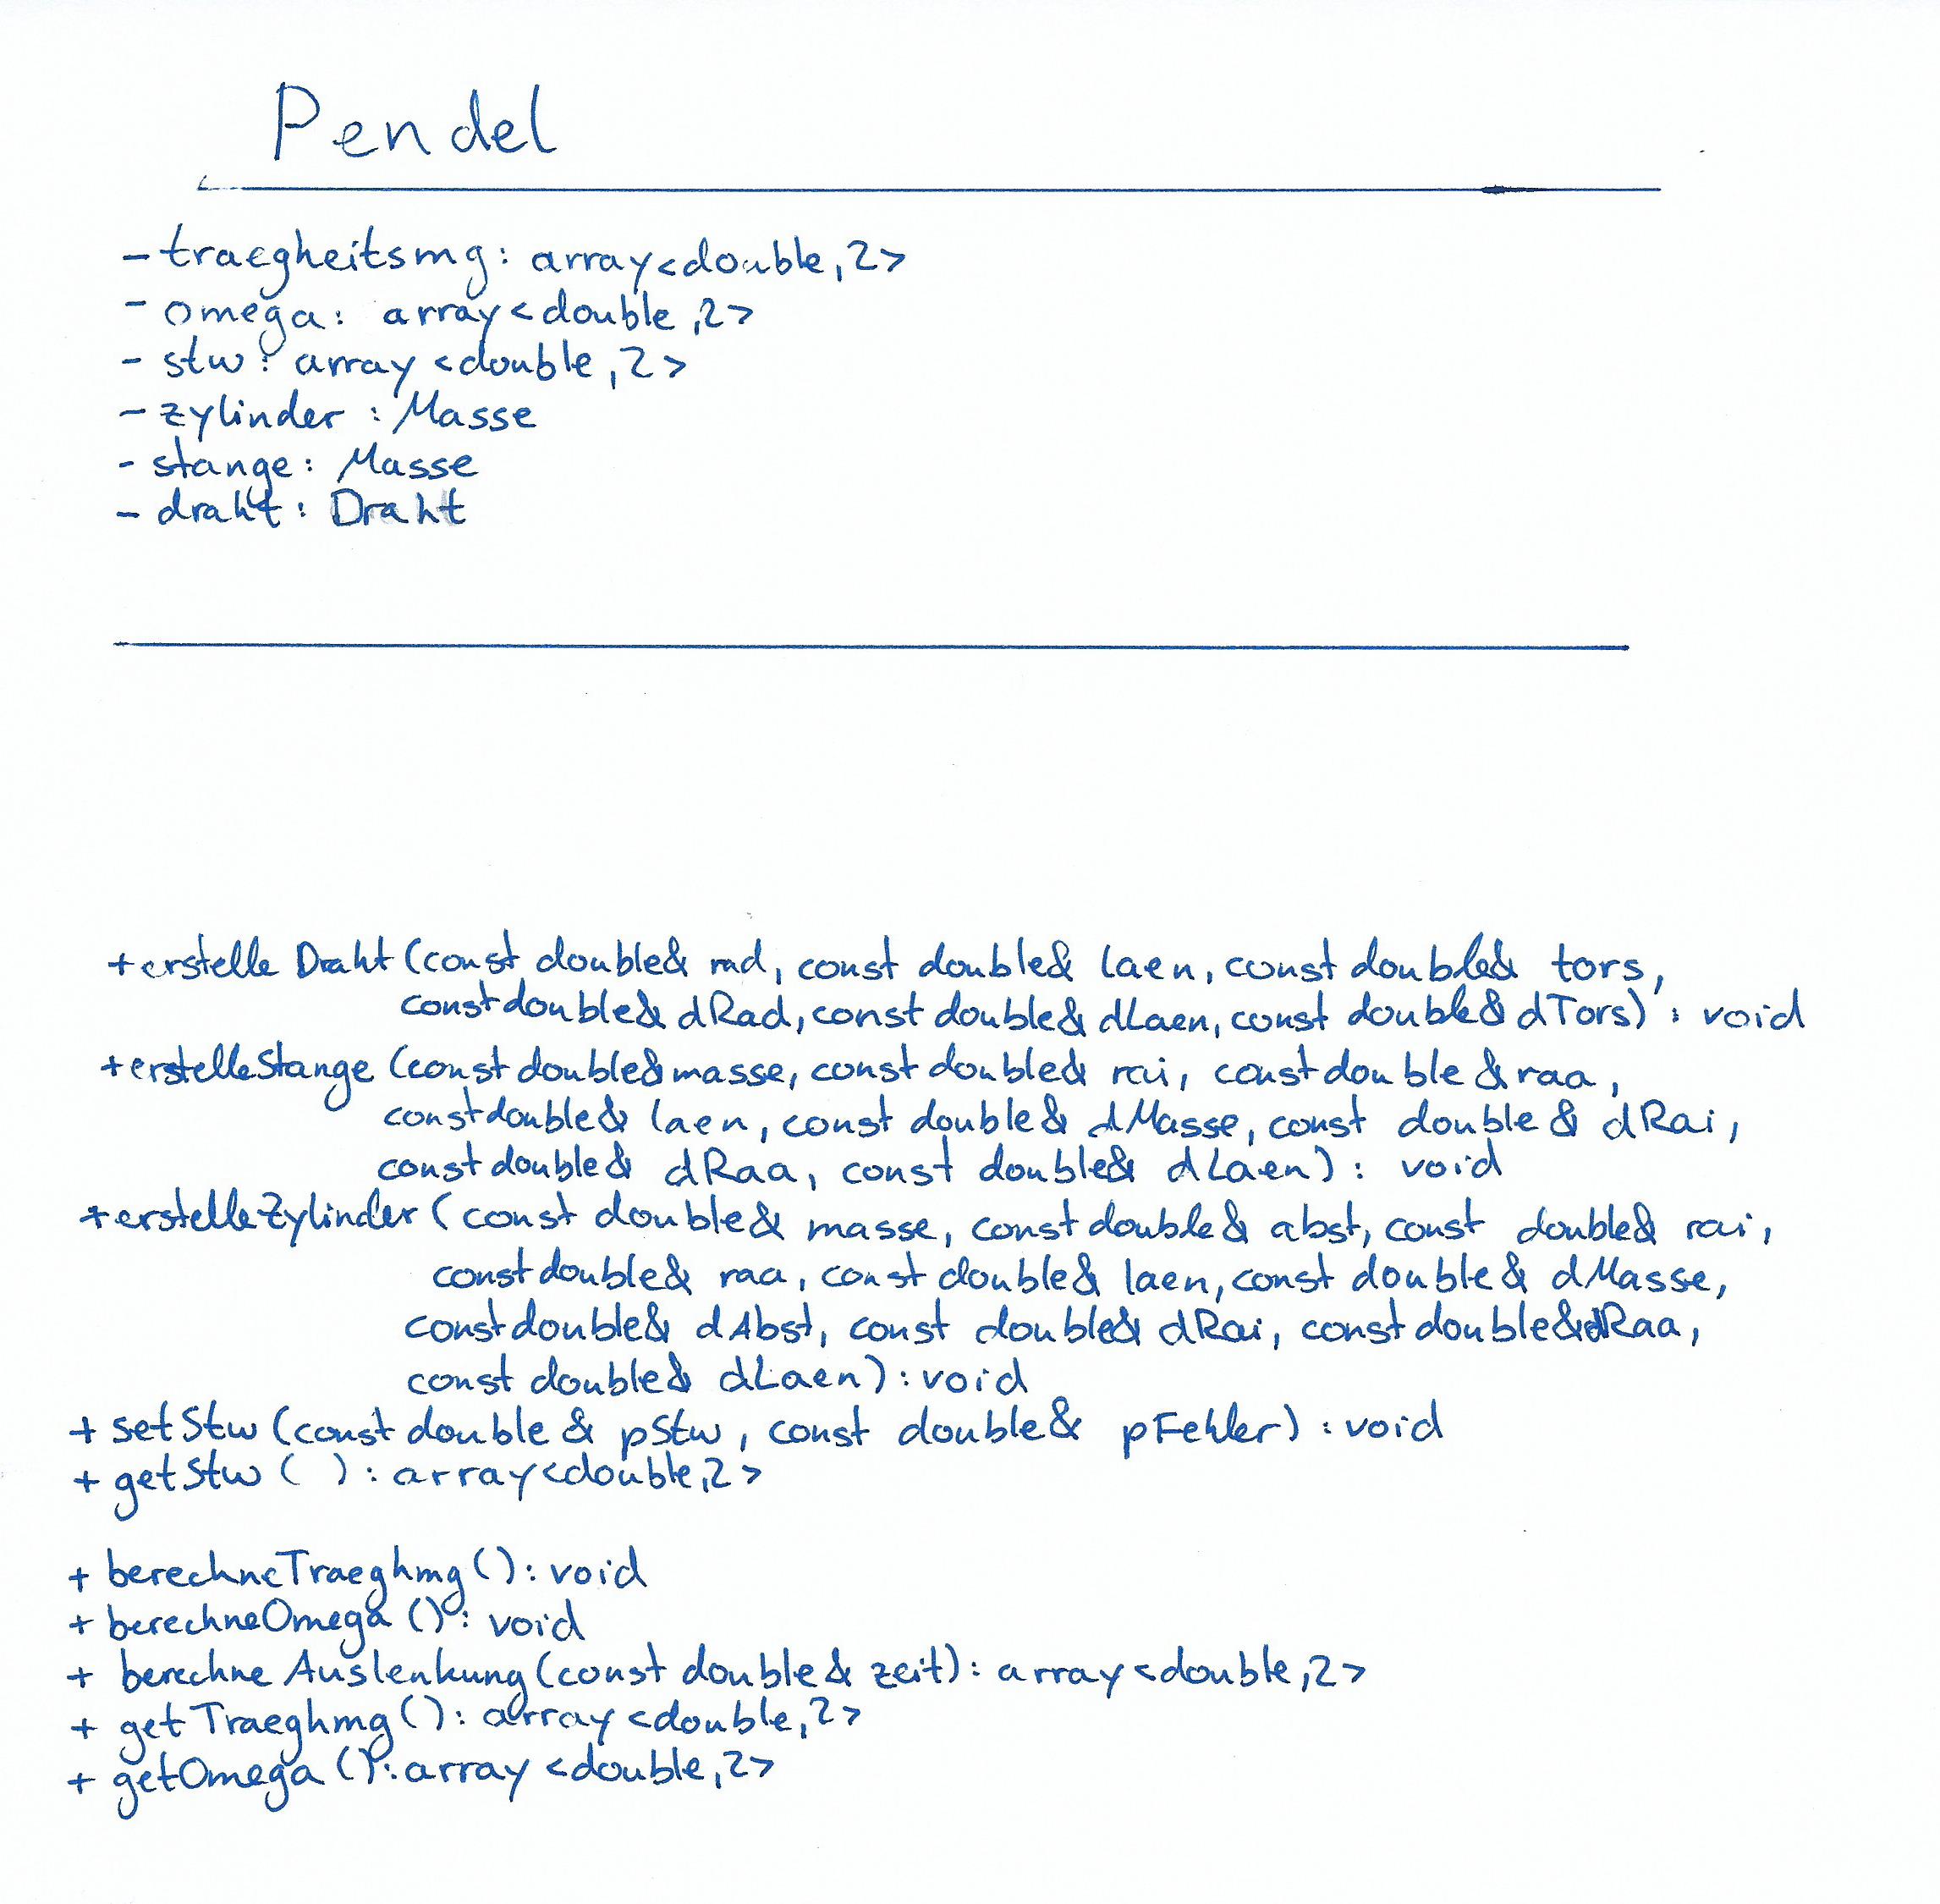 Pendel
- traegheitsmg: array<double,2>
- omega: array<double,2>
- stw: array<double,2>
- zylinder: Masse
- stange: Masse
- draht: Draht
+ erstelle Draht (const double& rad, const double& laen, const double& tors,
const double& dRad, const double& dLaen, const double& dTors) : void
+ erstelleStange (const double& masse, const double& rai, const double & raa,
const double& laen, const double& dMasse, const double & dRai,
const double& dRaa, const double& dLaen): void
+ erstelleZylinder (const double& masse, const double& abst, const double& rai,
const double& raa, const double& laen, const double& dMasse,
const double& dAbst, const double& dRai, const double& dRaa,
const double& dLaen): void
+ setStw (const double & pStw, const double& pFehler) : void
+ getStw ( ) : array<double,2>
+ berechneTraeghmg(): void
+ berechneOmega(): void
+ berechne Auslenkung (const double & zeit): array<double,2>
+ getTraeghmg(): array<double,2>
+ getOmega(): array<double,2>